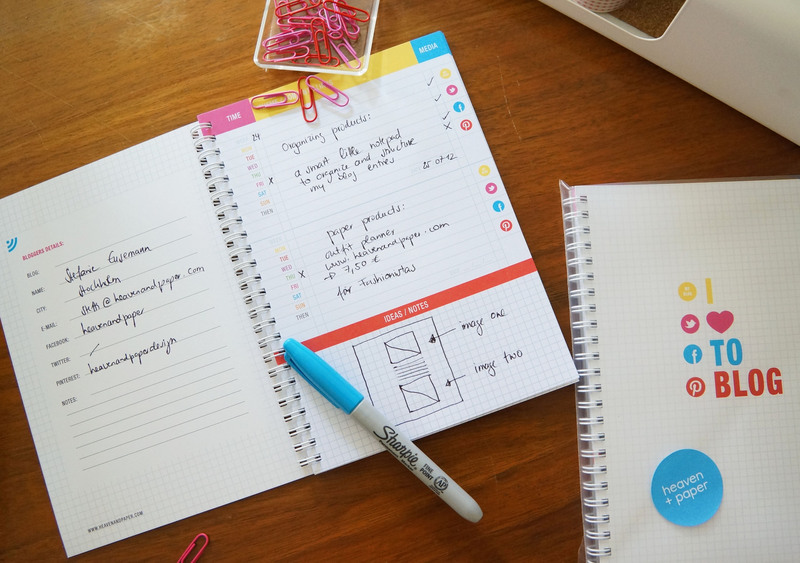 BLOGGERS DETAILS:
BLOG:
NAME: Stefanie
CITY: Stockholm
E-MAIL: @heavenandpaper.com
FACEBOOK: heavenandpaper
TWITTER: /
PINTEREST: heavenandpaperdesign
NOTES:
WWW.HEAVENANDPAPER.COM
TIME
MEDIA
29
Organizing products:
MON
TUE
WED
THU
FRI x
SAT
SUN
THEN
a smart little notepad
to organize and structure
my blog entries
07.12
paper products:
MON
TUE
WED
THU x
FRI
SAT
SUN
THEN
outfit planner
www.heavenandpaper.com
7,50 €
for Fashionistas
IDEAS / NOTES
image one
image two
Sharpie
FINE
POINT
AP
I
TO
BLOG
heaven
+ paper